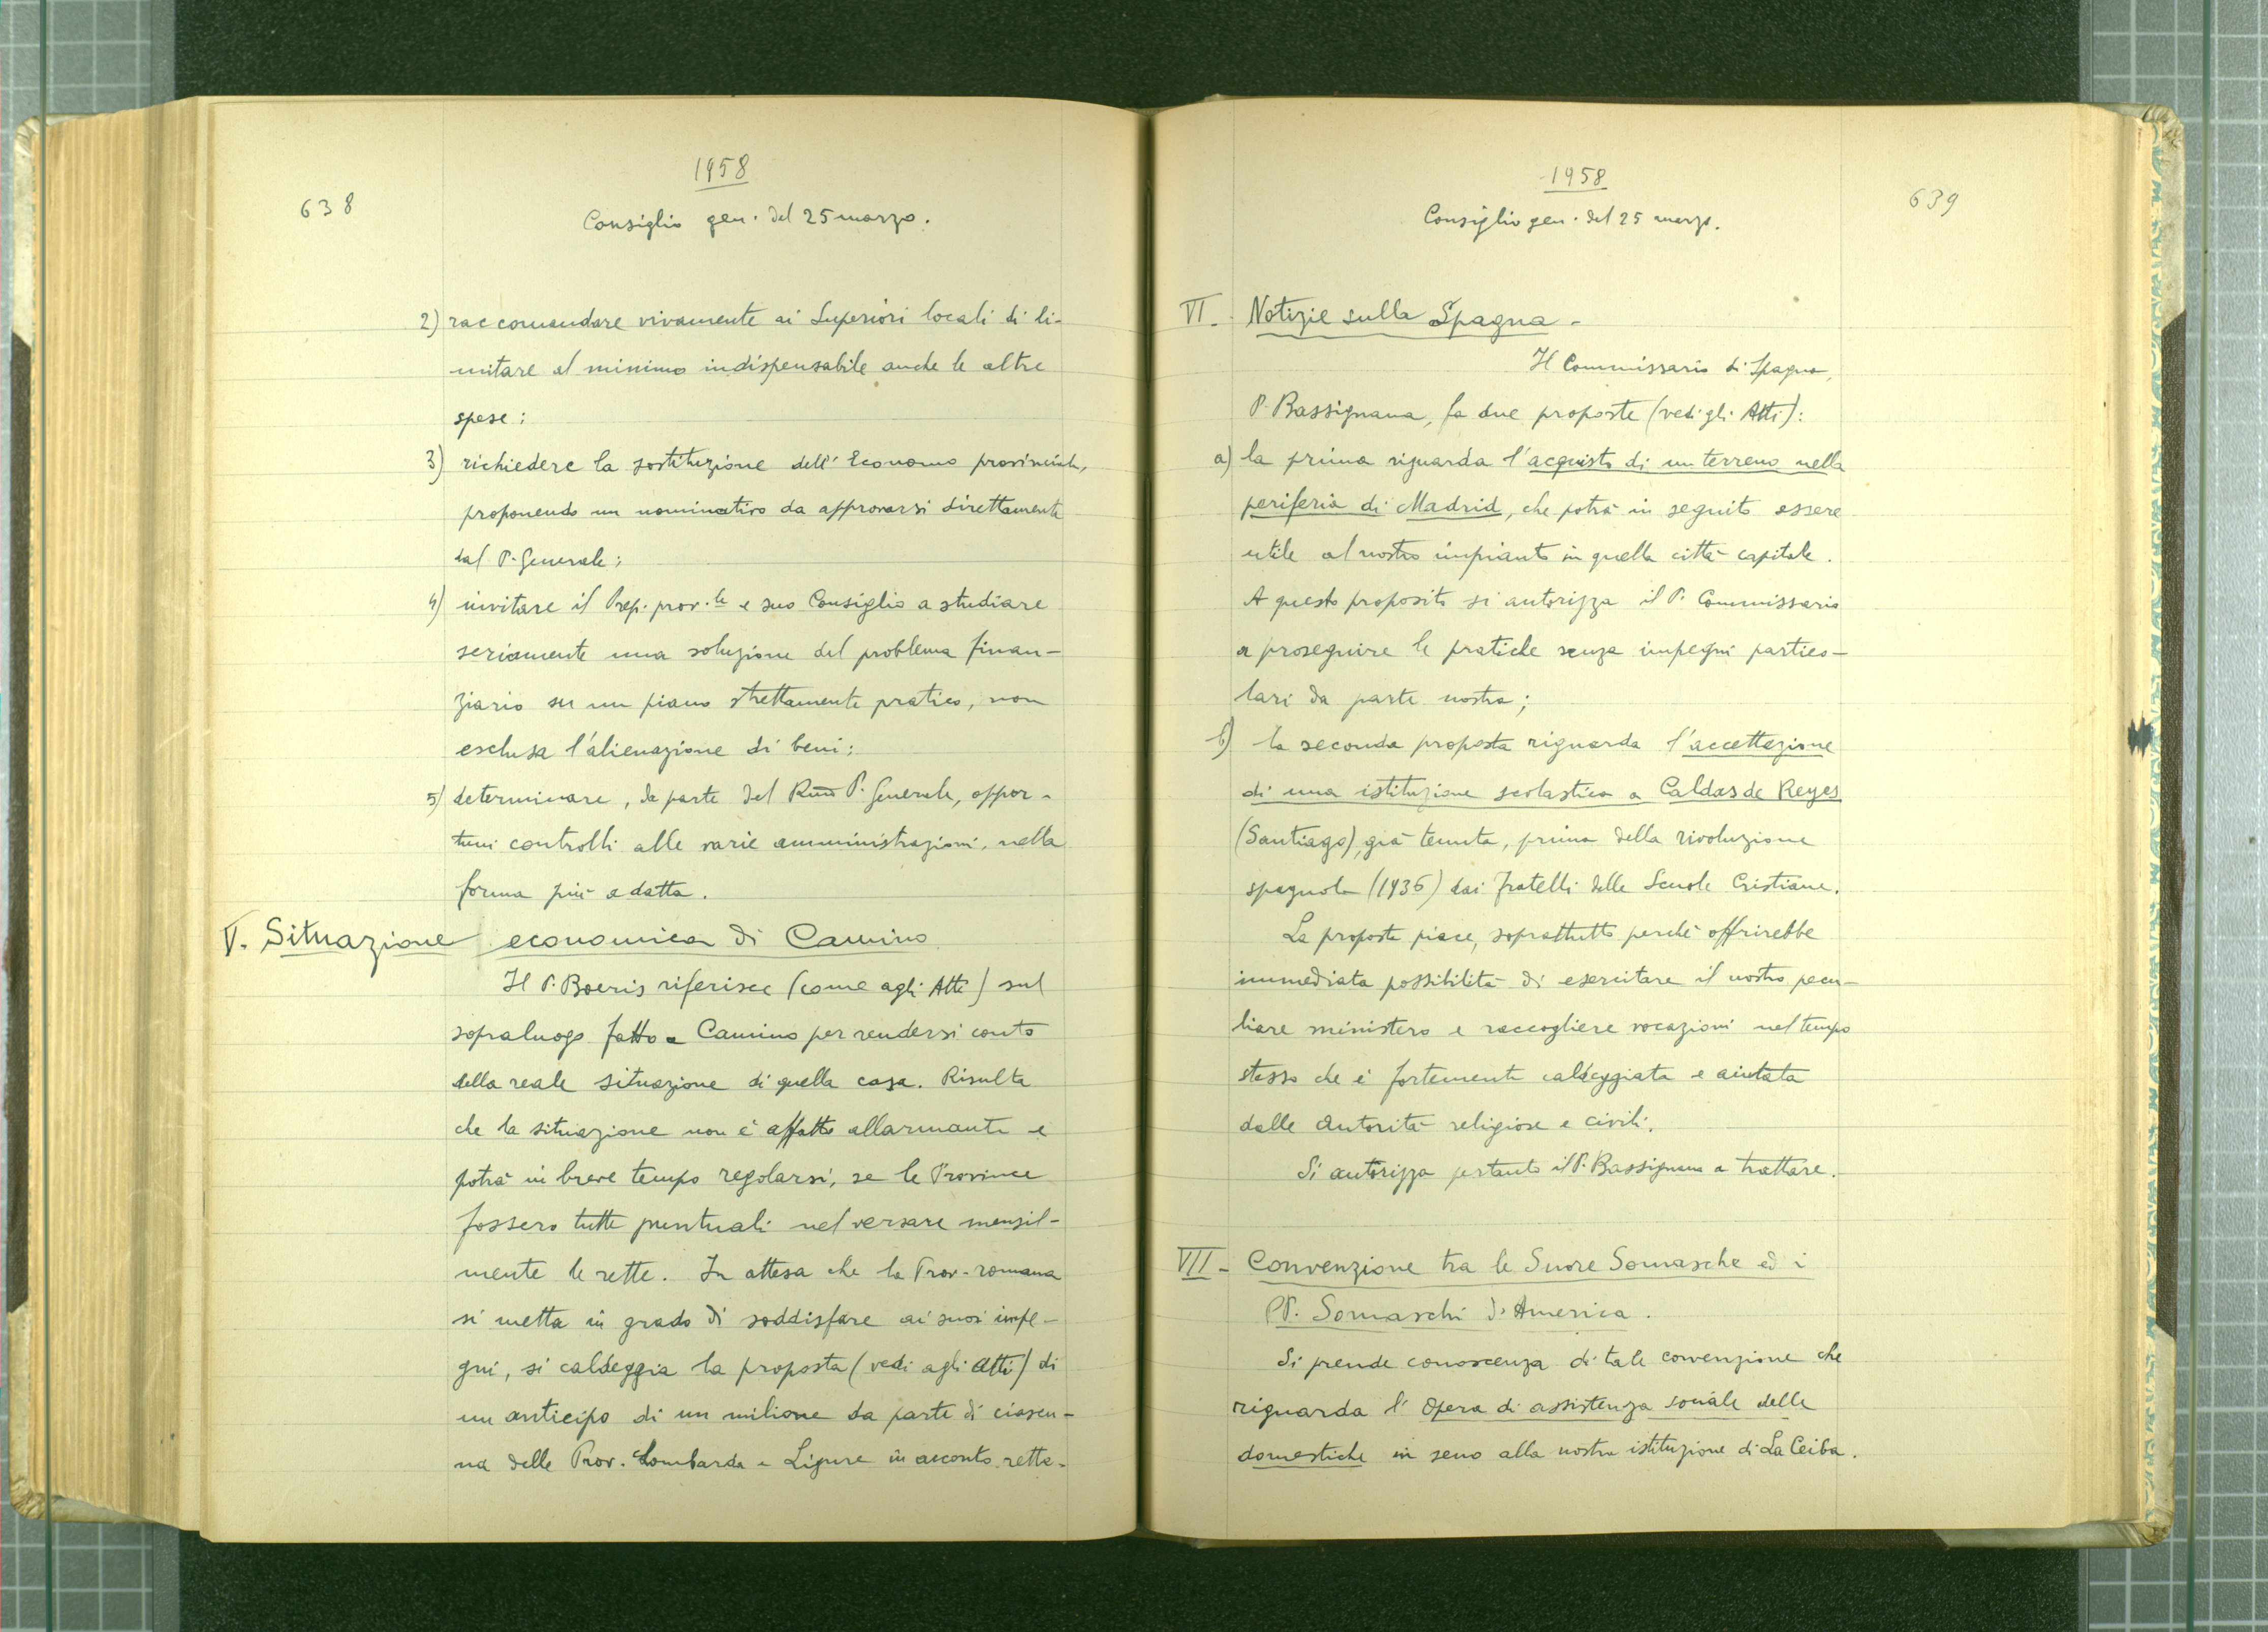 638
1958
Consiglio gen. del 25 marzo.
2) raccomandare vivamente ai Superiori locali di li-
mitare al minimo indispensabile anche le altre
spese;
3) richiedere la sostituzione dell'Economo provinciale,
proponendo un nominativo da approvarsi direttamente
dal P. Generale;
4) invitare il Prep. prov.le e suo Consiglio a studiare
seriamente una soluzione del problema finan-
ziario su un piano strettamente pratico, non
esclusa l'alienazione di beni;
5) determinare, da parte del Rmo P. Generale, oppor-
tuni controlli alle varie amministrazioni, nella
forma più adatta.
V. Situazione economica di Camino
Il P. Boeris riferisce (come agli Atti) sul
sopraluogo fatto a Camino per rendersi conto
della reale situazione di quella casa. Risulta
che la situazione non è affatto allarmante e
potrà in breve tempo regolarsi, se le Province
fossero tutte puntuali nel versare mensil-
mente le rette. In attesa che la Prov. romana
si metta in grado di soddisfare ai suoi impe-
gni, si caldeggia la proposta (vedi agli Atti) di
un anticipo di un milione da parte di ciascu-
na delle Prov. Lombarda e Ligure in acconto rette.
639
1958
Consiglio gen. del 25 marzo.
VI. Notizie sulla Spagna -
Il Commissario di Spagna,
P. Bassignana, fa due proposte (vedi gli Atti):
a) la prima riguarda l'acquisto di un terreno nella
periferia di Madrid, che potrà in seguito essere
utile al nostro impianto in quella città capitale.
A questo proposito si autorizza il P. Commissario
a proseguire le pratiche senza impegni partico-
lari da parte nostra;
b) la seconda proposta riguarda l'accettazione
di una istituzione scolastica a Caldas de Reyes
(Santiago), già tenuta, prima della rivoluzione
spagnola (1936) dai Fratelli delle Scuole Cristiane.
La proposta piace, soprattutto perchè offrirebbe
immediata possibilità di esercitare il nostro pecu-
liare ministero e raccogliere vocazioni nel tempo
stesso che è fortemente caldeggiata e aiutata
dalle autorità religiose e civili.
Si autorizza pertanto il P. Bassignana a trattare.
VII - Convenzione tra le Suore Somasche ed i
PP. Somaschi d'America.
Si prende conoscenza di tale convenzione che
riguarda l'Opera di assistenza sociale delle
domestiche in seno alla nostra istituzione di La Ceiba.